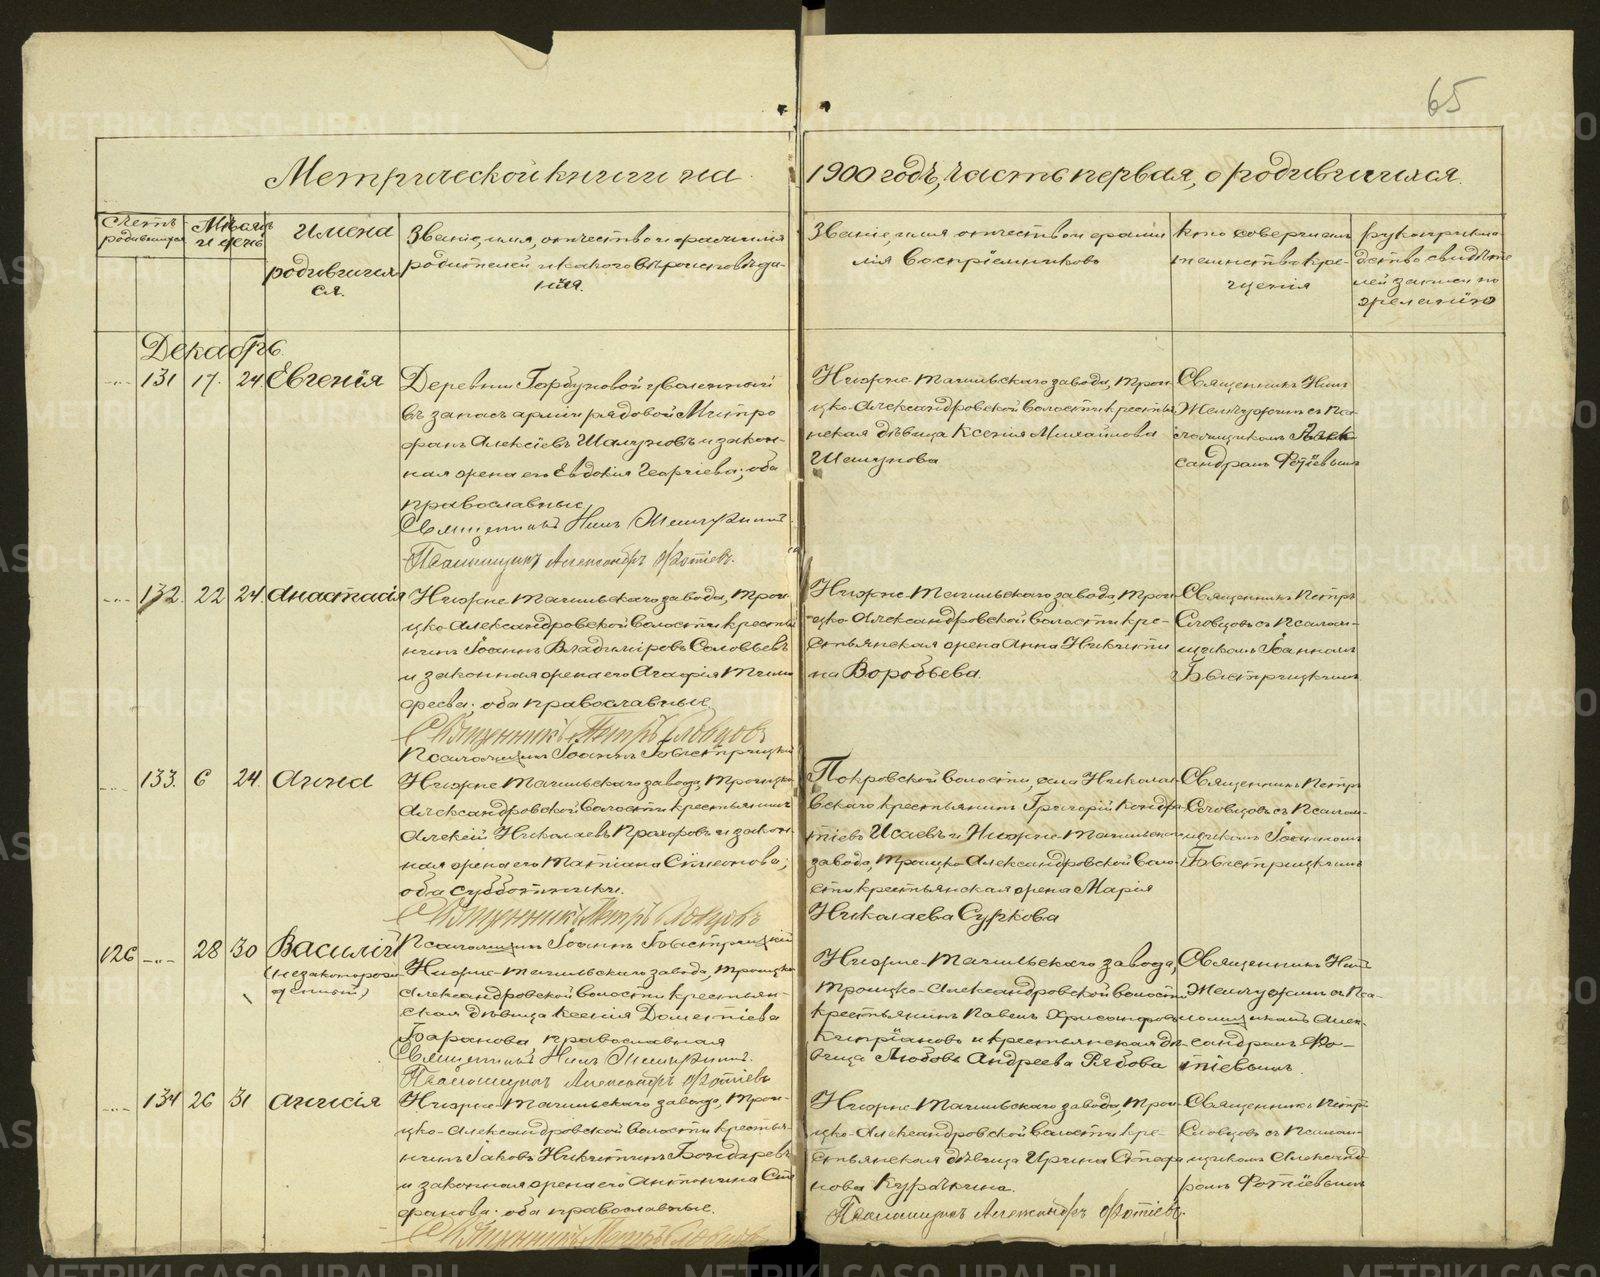 65
Метрической книги на 1900 годъ, часть первая, о родившихся.
Счетъ родившихся
Мѣсяцъ и день
Имена родившихся.
Званіе, имя, отчество и фамилія родителей и какого вѣроисповѣданія.
Званіе, имя отчество и фамилія воспріемниковъ
Кто совершалъ таинство крещенія
рукоприкладство свидѣтелей записи по желанію
Декабрь
131 17. 24. Евгенія
Деревни Горбуновой уволенный
въ запасъ арміи рядовой Митро
фанъ Алексіевъ и закон-
ная жена его Евдокія Георгіева; оба
православные
Священникъ Нилъ
Псаломщикъ Александръ Фотіевъ.
Нижне-Тагильскаго завода, Трои-
цко-Александровской волости крестья
нская дѣвица Ксенія Михаилова
Священникъ Нилъ
съ Пса-
ломщикомъ Алек
сандромъ Фотіевымъ
132. 22 24. Анастасія
Нижне-Тагильскаго завода, Трои-
цко-Александровской волости крестья
нинъ Іоаннъ Владиміровъ Соловьевъ
и законная жена его Агафія Тимо
феева; оба православные
Священникъ Петръ Словцовъ
Псаломщикъ Іоаннъ Быстрицкій
Нижне-Тагильскаго завода, Трои
цко-Александровской волости кре-
стьянская жена Анна Никити
на Воробьева.
Священникъ Петръ
Словцовъ съ Псалом-
щикомъ Іоанномъ
Быстрицкимъ
133. 6 24. Анна
Нижне-Тагильскаго завода, Троицко
Александровской волости крестьянинъ
Алексій Николаевъ Прохоровъ и закон-
ная жена его Татіана Симеонова;
оба субботники.
Священникъ Петръ Словцовъ
Псаломщикъ Іоаннъ Быстрицкій
Покровской волости, села Николаевскаго крестьянинъ Григорій Кондра
тіевъ Исаевъ и Нижне-Тагильскаго
завода, Троицко-Александровской воло-
сти крестьянская жена Марія
Николаева Суркова
Священникъ Петръ
Словцовъ съ Псалом-
щикомъ Іоанномъ
Быстрицкимъ
126 -"- 28 30 Василій
(незаконорож
денный)
Нижне-Тагильскаго завода, Троицко
Александровской волости крестьян-
ская дѣвица Ксенія Дометіева
Баранова православная
Священникъ Нилъ
Псаломщикъ Александръ Фотіевъ
Нижне-Тагильскаго завода,
Троицко-Александровской волости
крестьянинъ Павелъ Хрисанфовъ
Кипріановъ и крестьянская дѣ-
вица Любовь Андреева Рябова
Священникъ Нилъ
съ Пса-
ломщикомъ Алек-
сандромъ Фо-
тіевымъ.
134 26 31 Анисія
Нижне-Тагильскаго завода, Трои-
цко-Александровской волости крестья-
нинъ Іаковъ Никитинъ Бондаревъ
и законная жена его Антонина Сте
фанова; оба православные.
Священникъ Петръ Словцовъ
Нижне-Тагильскаго завода, Трои-
цко-Александровской волости кре-
стьянская дѣвица Ирина Стефа
нова Курѣкина.
Псаломщикъ Александръ Фотіевъ.
Священникъ Петръ
Словцовъ съ Псалом-
щикомъ Александ-
ромъ Фотіевымъ
METRIKI.GASO-URAL.RU